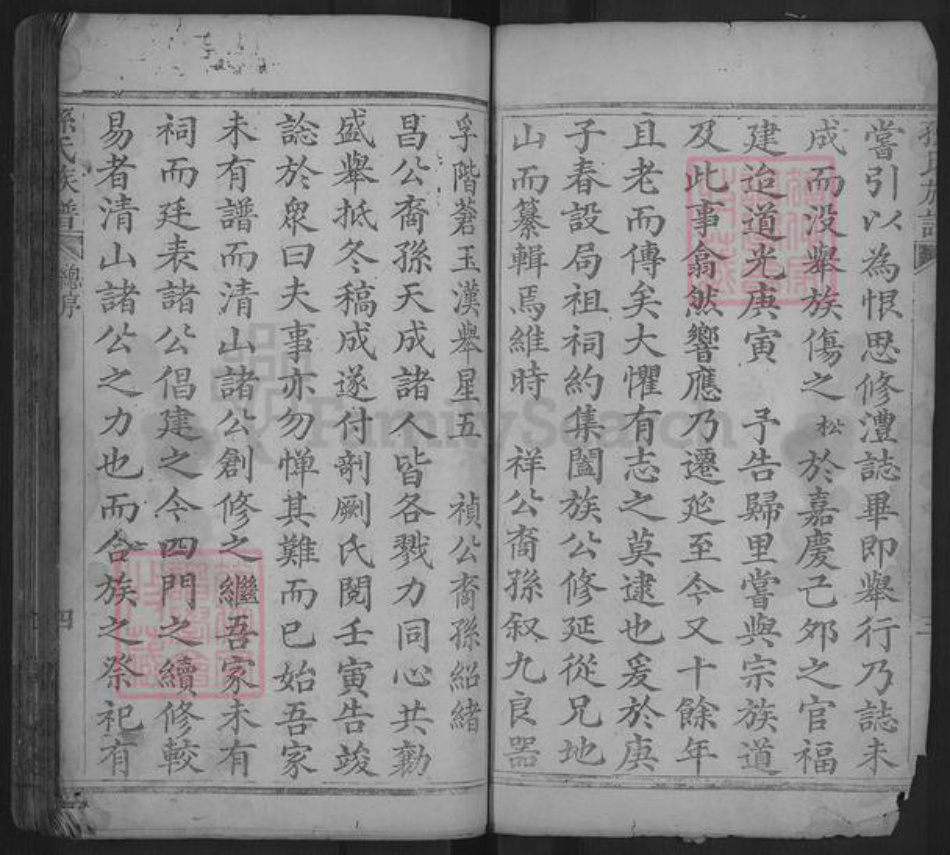 嘗引以為恨思修澧誌畢即舉行乃誌未
成而没舉族傷之松於嘉慶己夘之官福
建迨道光庚寅 予告歸里嘗與宗族道
及此事翕然響應乃遷延至今又十餘年
且老而傳矣大懼有志之莫逮也爰於庚
子春設局祖祠約集闔族公修延從兄地
山而纂輯焉維時 祥公裔孫叙九良器
孚階蒼玉漢舉星五 禎公裔孫紹緒
昌公裔孫天成諸人皆各戮力同心共勷
盛舉抵冬稿成遂付剞劂氏閱壬寅告竣
諗於衆曰夫事亦勿憚其難而已始吾家
未有譜而清山諸公創修之繼吾家未有
祠而廷表諸公倡建之今四門之續修較
易者清山諸公之力也而合族之祭祀有
孫氏族譜
總序
四
FamilySearch